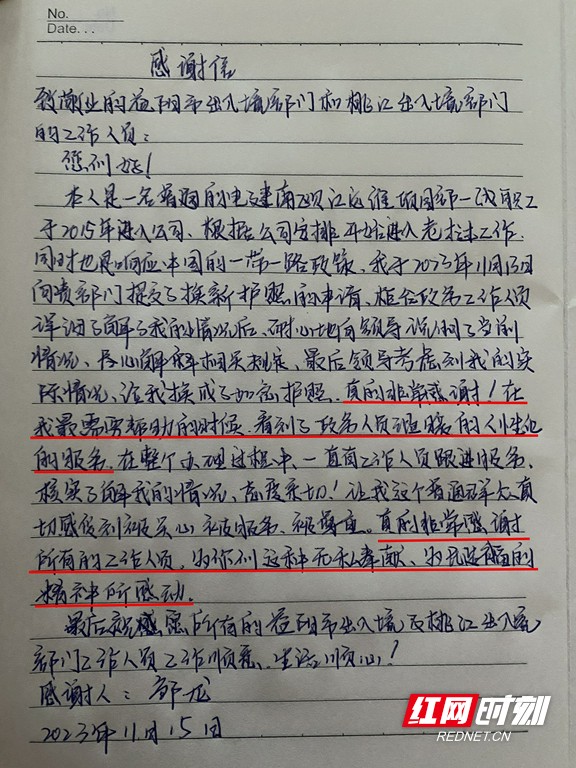 No.
Date...
感谢信
致敬业的益阳市出入境部门和桃江出入境部门
的工作人员：
您们好！
本人是一名普通的电建南 江 项目部一线职工
于2015年进入公司、根据公司安排开始进入老挝工作.
同时也是响应中国的一带一路政策、我于2023年11月13日
向贵部门提交了换新护照的申请、柜台政务工作人员
详细了解了我的情况后、耐心地向领导说明了当前
情况、 心解释相关规定、最后领导考虑到我的实
际情况、给我换成了加急护照. 真的非常感谢！在
我最需要帮助的时候.看到了政务人员 的人性化
的服务. 在整个办理过程中、一直有工作人员跟进服务、
核实了解我的情况、态度亲切！让我这个普通群众真
切感受到被关心、被服务、被尊重。真的非常感谢
所有的工作人员、为你们这种无私奉献、为民造福的
精神所感动.
最后 愿所有的益阳市出入境及桃江出入境
部门工作人员工作顺意、生活顺心！
感谢人：邹龙
2023年11月15日
红网时刻
REDNET.CN